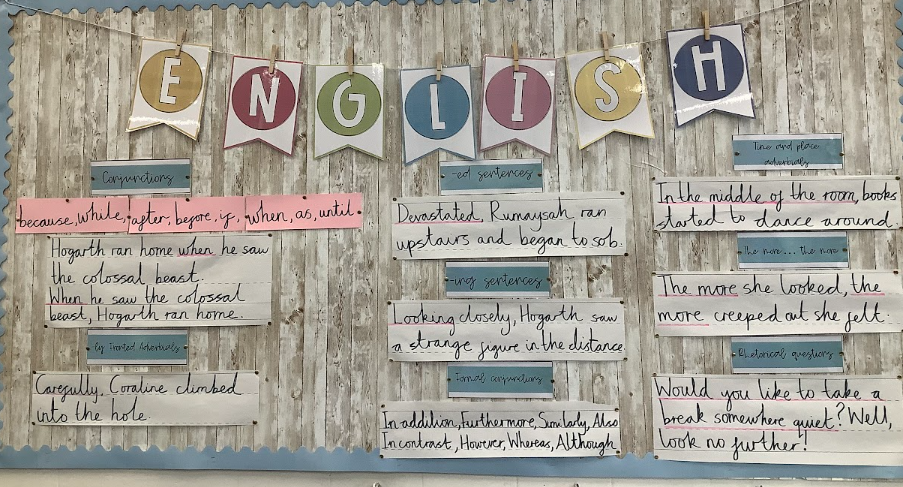 ENGLISH
Conjunctions
because, while, after, before, if, when, as, until
Hogarth ran home when he saw
the colossal beast.
When he saw the colossal
beast, Hogarth ran home.
Ly Fronted Adverbials
Carefully, Coraline climbed
into the hole.
-ed sentences
Devastated, Rumaysah ran
upstairs and began to sob.
-ing sentences
Looking closely, Hogarth saw
a strange figure in the distance.
Formal conjunctions
In addition, Furthermore, Similarly, Also
In contrast, However, Whereas, Although
Time and place
adverbials
In the middle of the room, books
started to dance around.
The more... the more
The more she looked, the
more creeped out she felt.
Rhetorical questions
Would you like to take a
break somewhere quiet? Well,
look no further!